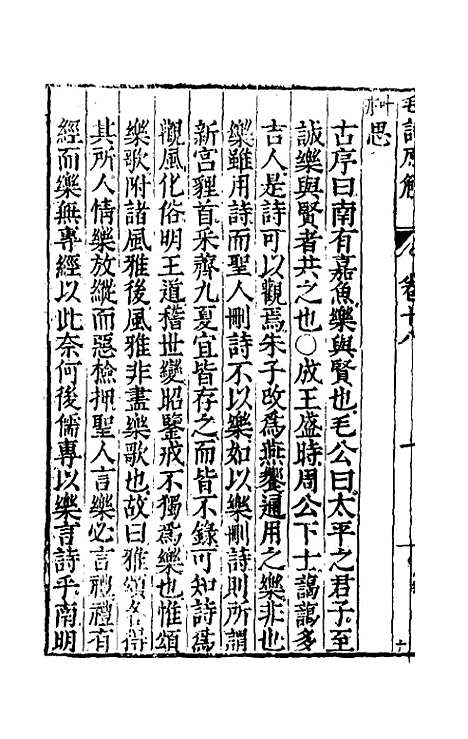 毛詩原解 卷十八
叶 思
古序曰南有嘉魚樂與賢也毛公曰太平之君子至
誠樂與賢者共之也○成王盛時周公下士藹藹多
吉人是詩可以觀焉朱子改為燕饗通用之樂非也
樂雖用詩而聖人刪詩不以樂如以樂刪詩則所謂
新宮貍首采薺九夏宜皆存之而皆不錄可知詩為
觀風化俗明王道稽世變昭鑒戒不獨為樂也惟頌
樂歌附諸風雅後風雅非盡樂歌也故曰雅頌各得
其所人情樂放縱而惡檢押聖人言樂必言禮禮有
經而樂無專經以此奈何後儒專以樂言詩乎南明